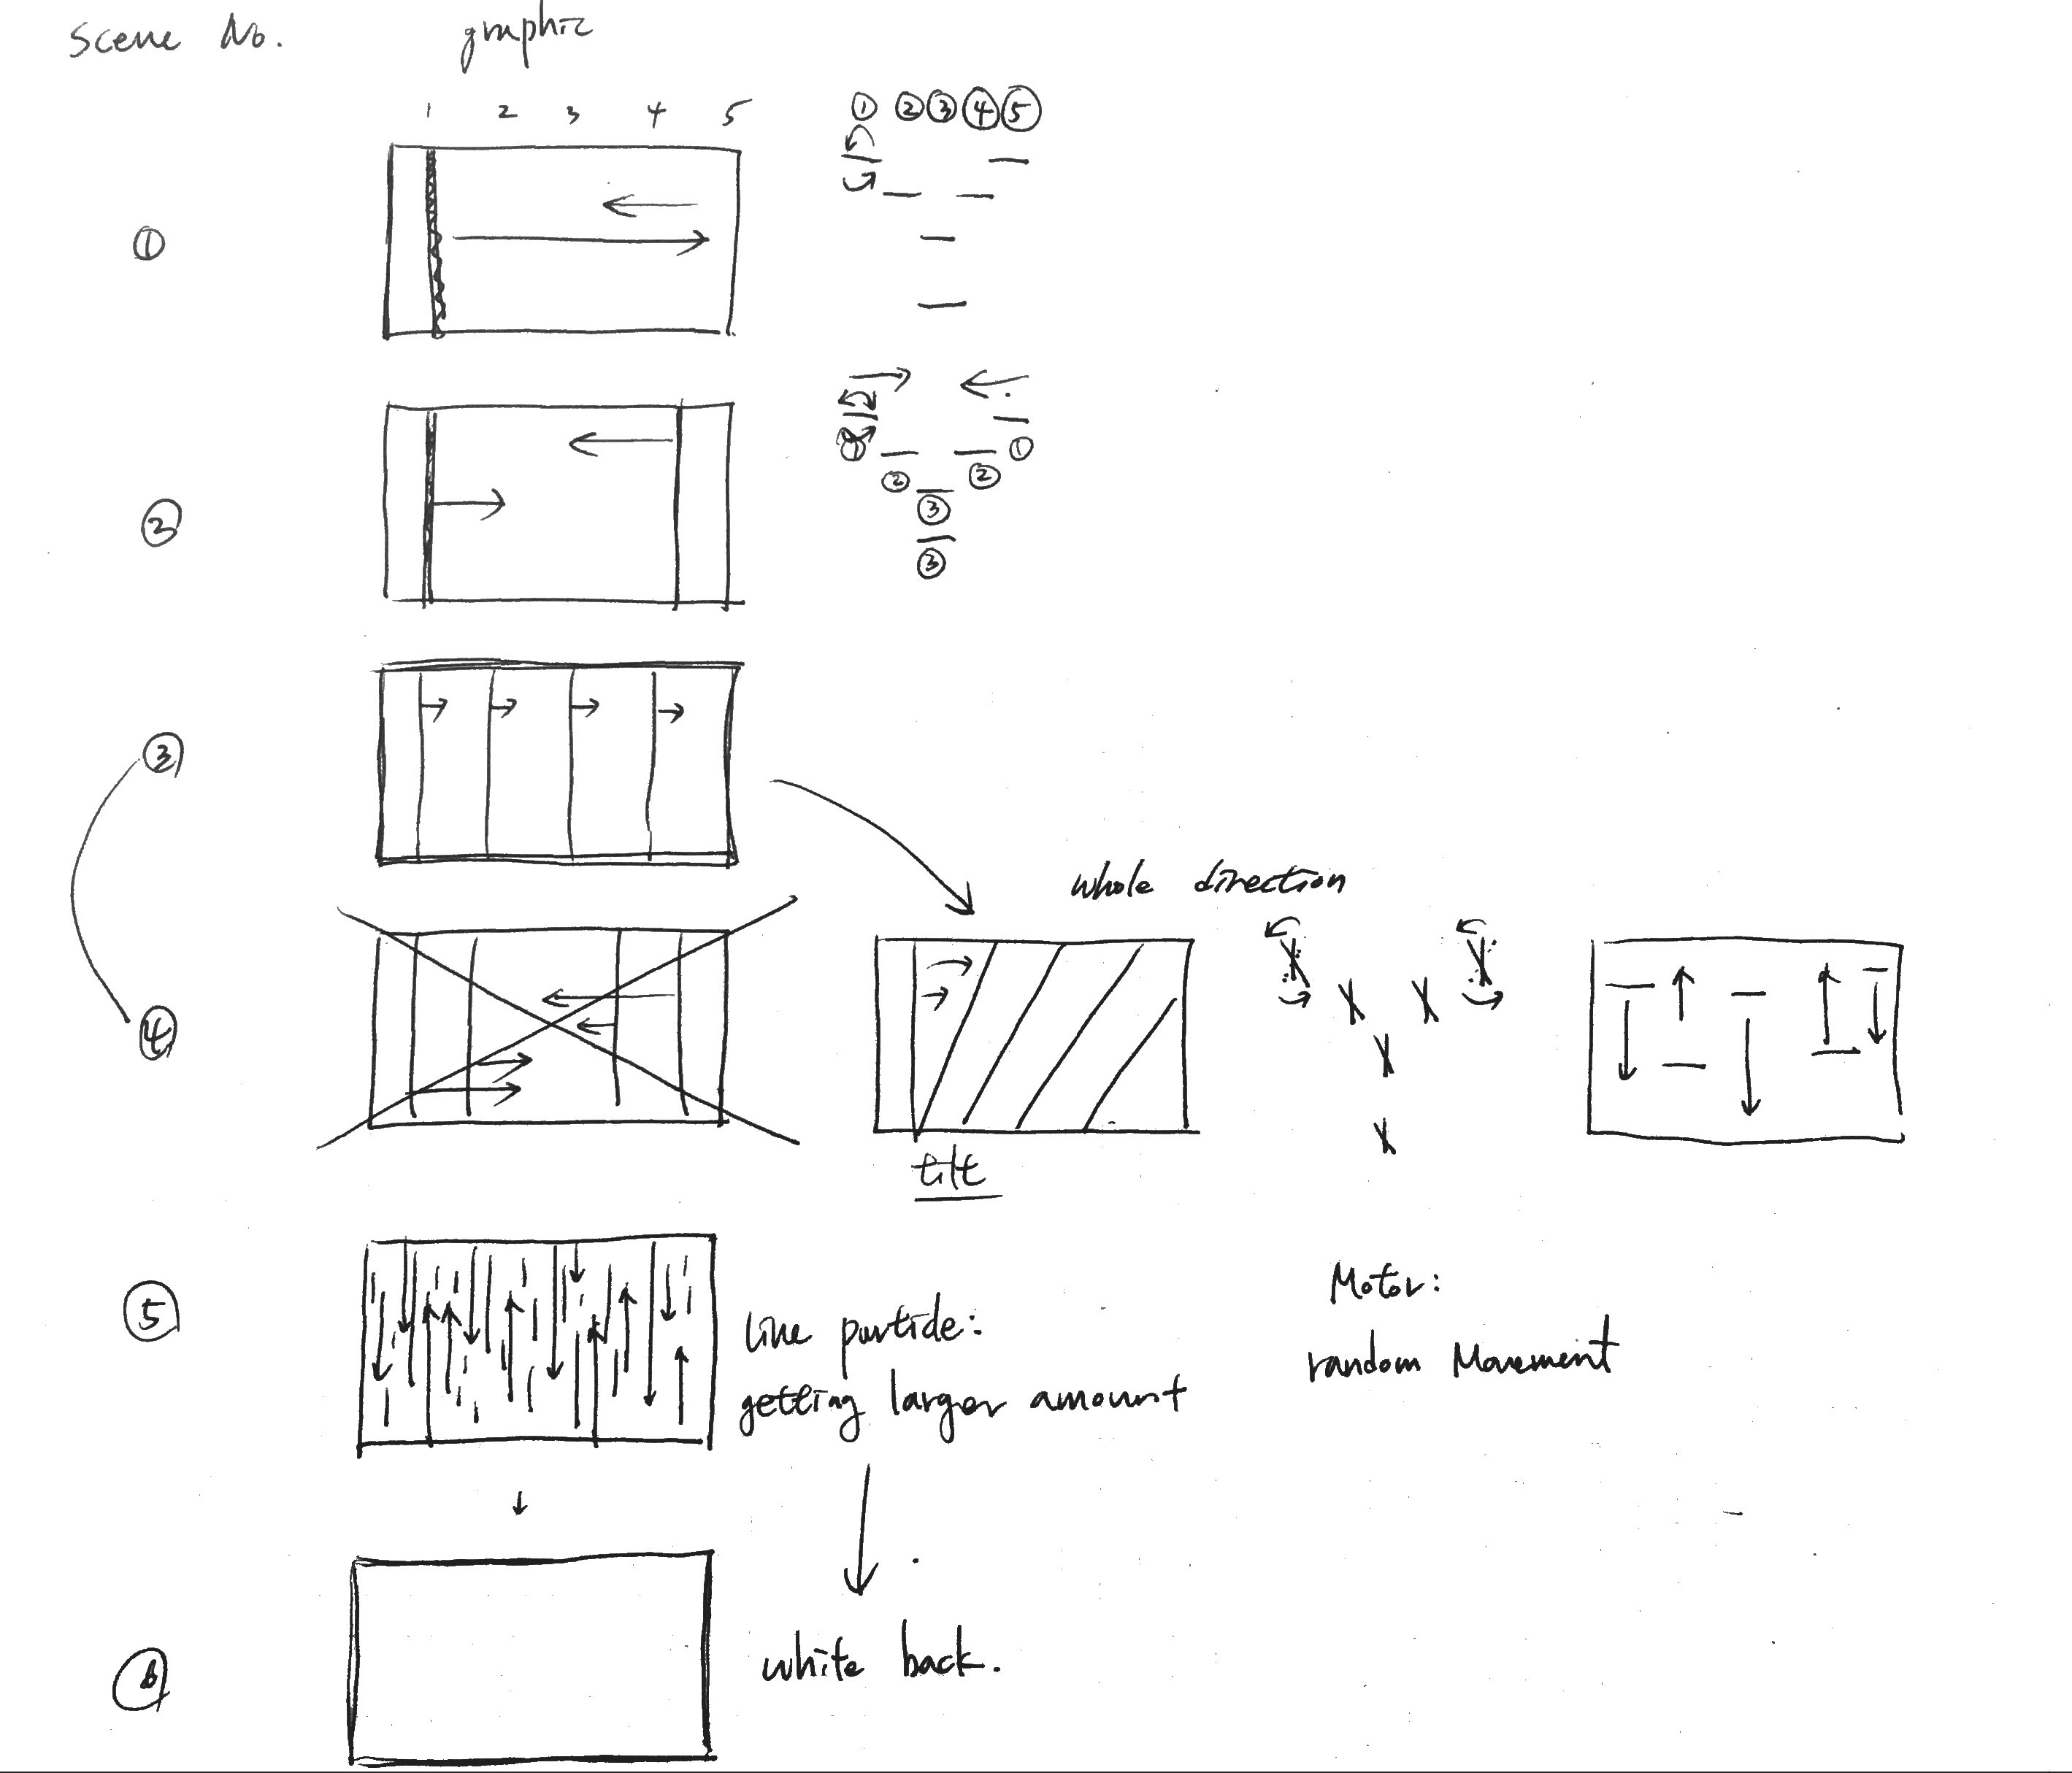 Scene No. graphic
1 2 3 4 5 ① ② ③ ④ ⑤
①
① ① 
② ②
③
②
③
③
whole direction
④
tilt
⑤
Motor:
line particle:
random Movement
getting larger amount
white back.
⑥